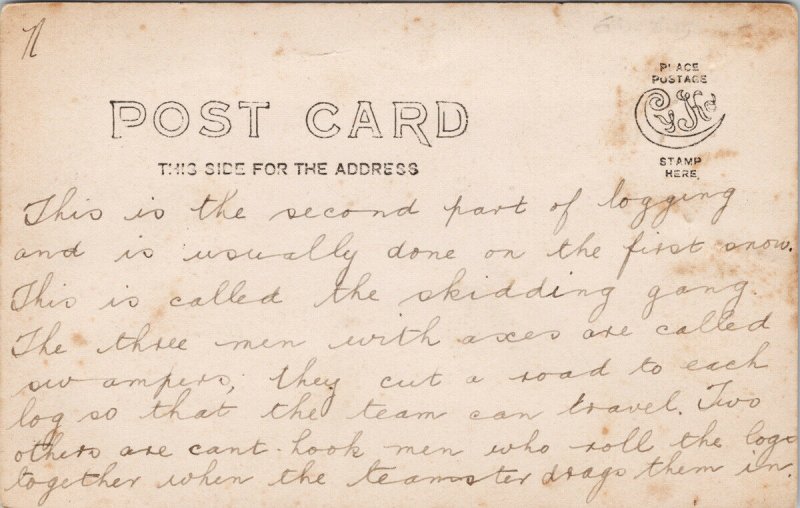 11
PLACE
POSTAGE
CyKo
POST CARD
STAMP
HERE
THIS SIDE FOR THE ADDRESS
This is the second part of logging
and is usually done on the first snow.
This is called the skidding gang.
The three men with axes are called
swampers, they cut a road to each
log so that the team can travel. Two
others are cant-hook men who roll the logs
together when the teamster drags them in.